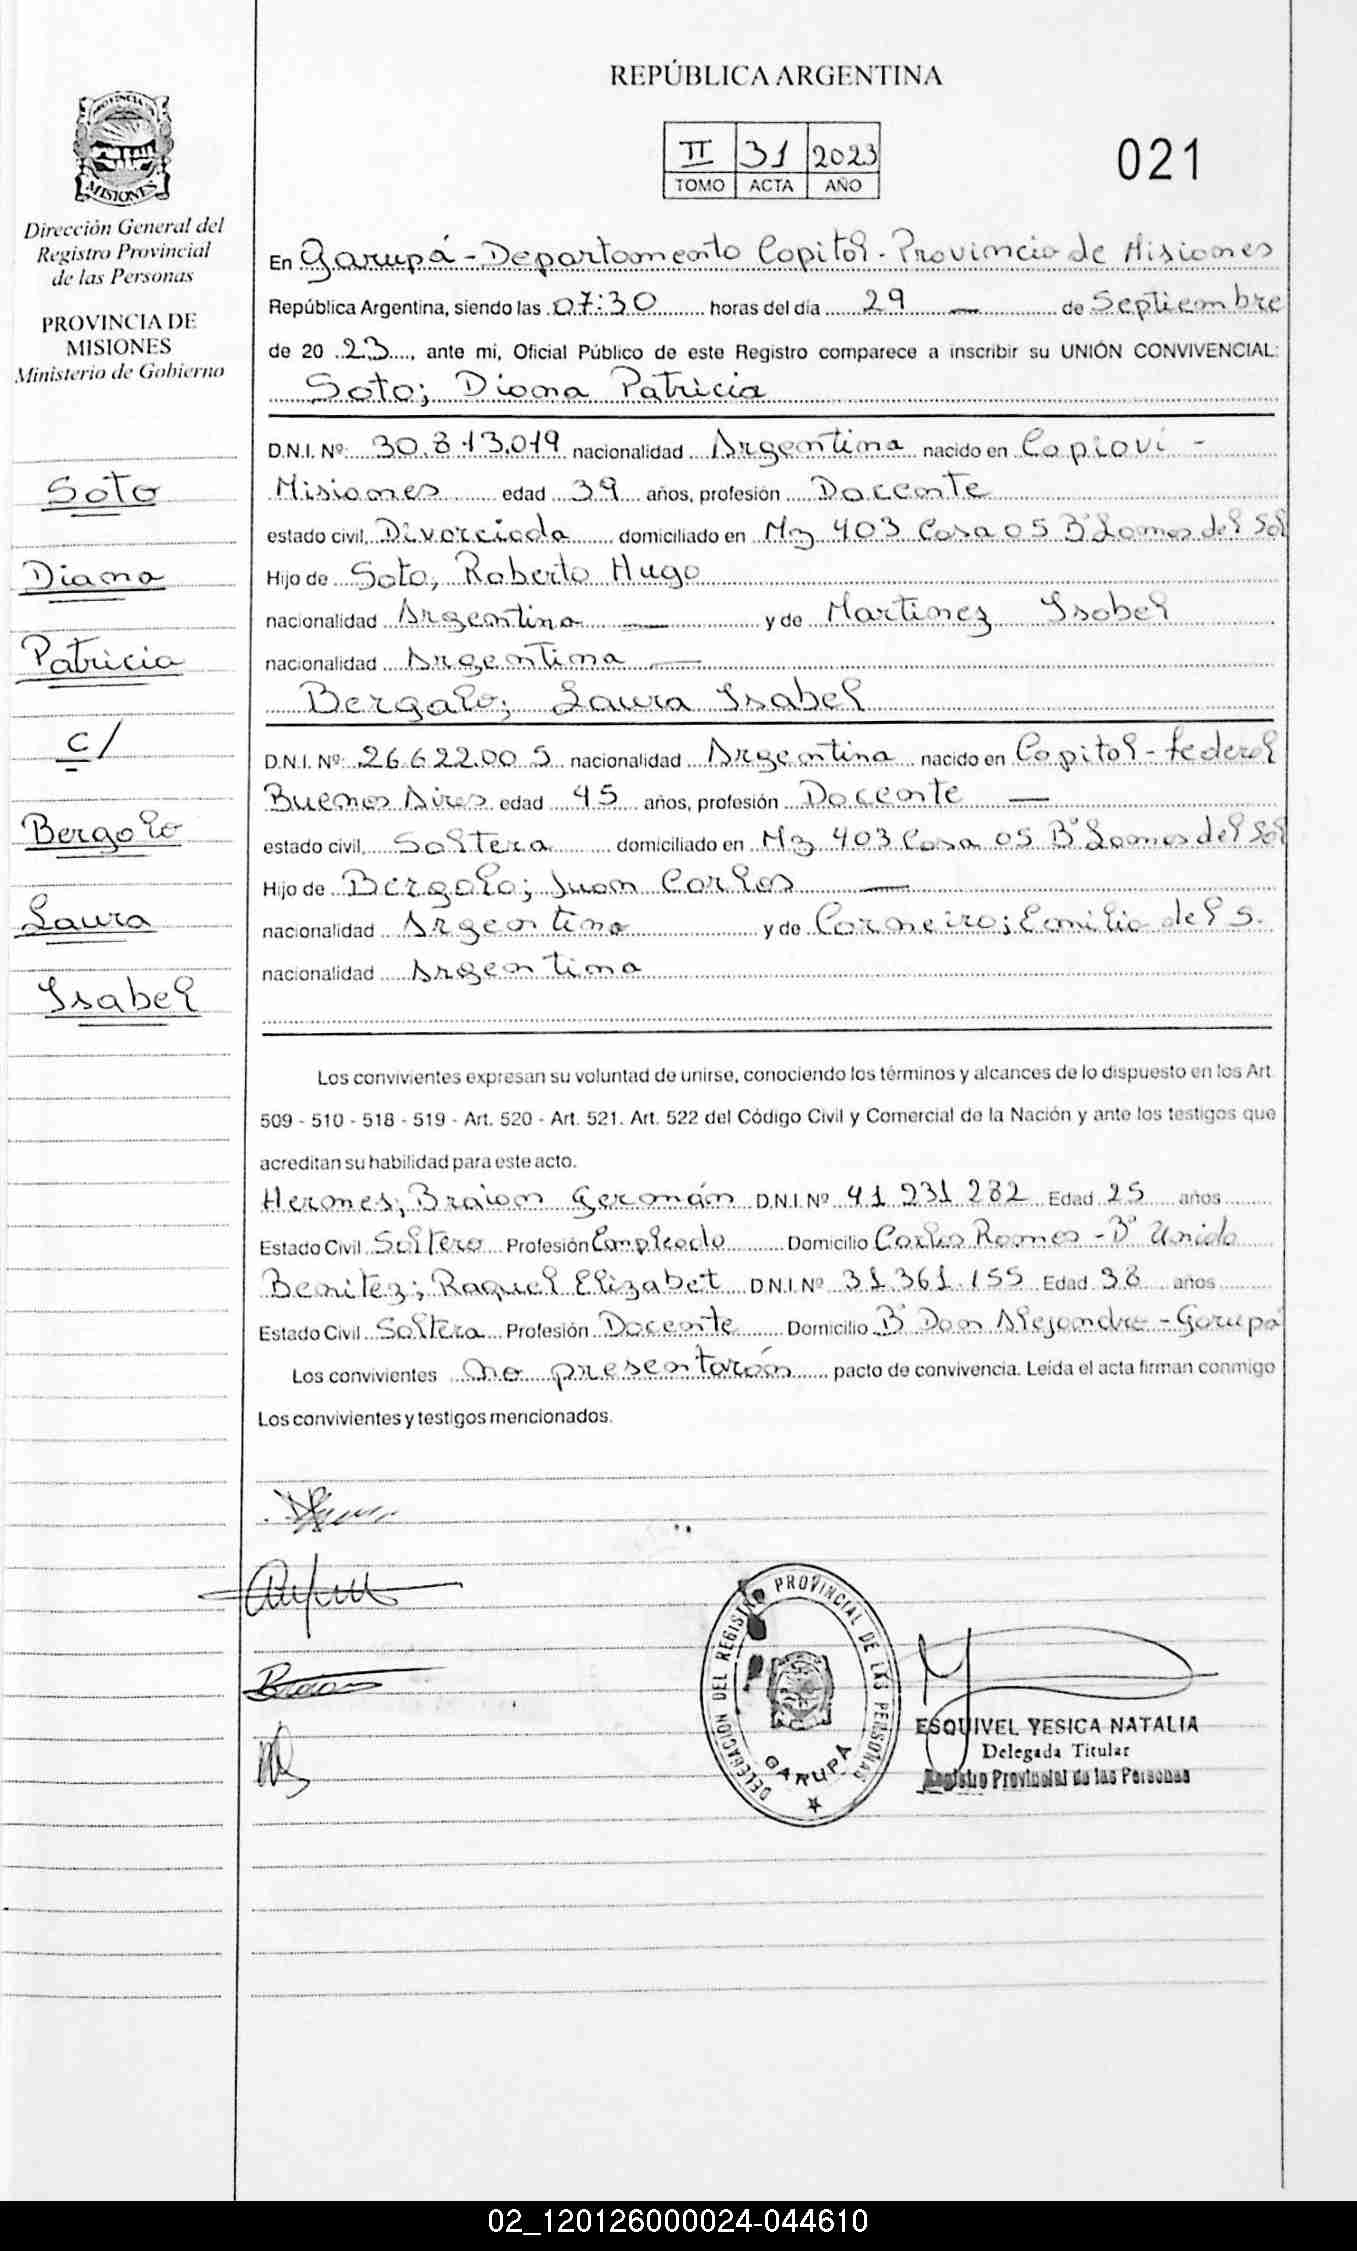 REPÚBLICA ARGENTINA
II 31 2023
TOMO ACTA AÑO
021
PROVINCIA DE
MISIONES
Dirección General del
Registro Provincial
de las Personas
PROVINCIA DE
MISIONES
Ministerio de Gobierno
Soto
Diana
Patricia
c/
Bergalo
Laura
Isabel
En Garupá - Departamento Capital - Provincia de Misiones
República Argentina, siendo las 07:30 horas del día 29 — de Septiembre
de 20 23, ante mi, Oficial Público de este Registro comparece a inscribir su UNIÓN CONVIVENCIAL:
Soto; Diana Patricia
D.N.I. Nº: 30.813.019 nacionalidad Argentina nacido en Capioví -
Misiones edad 39 años, profesión Docente
estado civil, Divorciada domiciliado en Mz 403 Casa 05 Bº Lomas del Sol
Hijo de Soto, Roberto Hugo
nacionalidad Argentina — y de Martinez Isabel
nacionalidad Argentina —
Bergalo; Laura Isabel
D.N.I. Nº: 26.622.005 nacionalidad Argentina nacido en Capital - Federal
Buenos Aires edad 45 años, profesión Docente —
estado civil, Soltera domiciliado en Mz 403 Casa 05 Bº Lomas del Sol
Hijo de Bergalo; Juan Carlos —
nacionalidad Argentina y de Carneiro; Emilia del S.
nacionalidad Argentina
Los convivientes expresan su voluntad de unirse, conociendo los términos y alcances de lo dispuesto en los Art.
509 - 510 - 518 - 519 - Art. 520 - Art. 521. Art. 522 del Código Civil y Comercial de la Nación y ante los testigos que
acreditan su habilidad para este acto.
Hermes; Braian Germán D.N.I. Nº 41 231 282 Edad 25 años
Estado Civil Soltero Profesión Empleado Domicilio Carlos Ramos - Bº Unido
Benitez; Raquel Elizabet D.N.I. Nº 31.361.155 Edad 38 años
Estado Civil Soltera Profesión Docente Domicilio Bº Don Alejandro - Garupá
Los convivientes no presentarón pacto de convivencia. Leída el acta firman conmigo
Los convivientes y testigos mencionados.
Braian
DELEGACION DEL REGISTRO PROVINCIAL DE LAS PERSONAS
GARUPÁ
ESQUIVEL YESICA NATALIA
Delegada Titular
Registro Provincial de las Personas
02_120126000024-044610